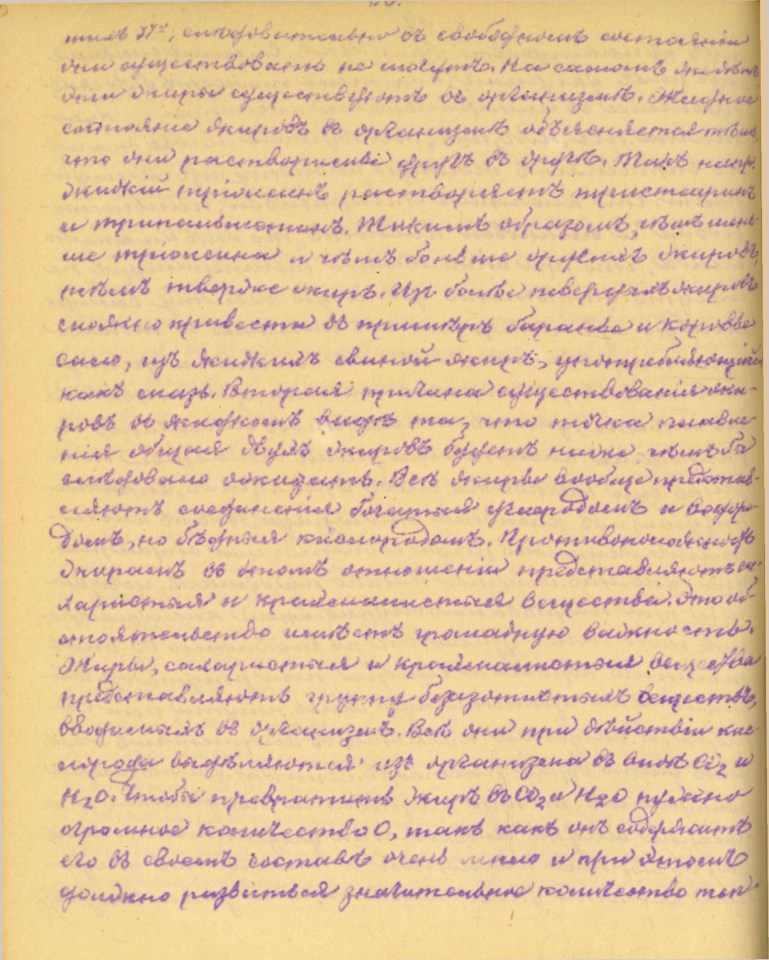 тилъ 37°; слѣдовательно въ свободномъ состояніи
они существовать не могутъ. На самомъ же дѣлѣ
эти жиры существуютъ въ организмѣ. Жидкое
состояніе жировъ въ организмѣ объясняется тѣмъ,
что они растворимы другъ въ другѣ. Такъ напр.
жидкій тріолеинъ растворяетъ тристеаринъ
и трипальмитинъ. Такимъ образомъ, чѣмъ мень-
ше тріолеина и чѣмъ больше другихъ жировъ,
тѣмъ тверже жиръ. Изъ болѣе твердыхъ жировъ
можно привести въ примѣръ баранье и коровье
сало, изъ жидкихъ свиной жиръ, употребляющійся
какъ мазь. Вторая причина существованія жи-
ровъ въ жидкомъ видѣ та, что точка плавле-
нія общая двухъ жировъ будетъ ниже, чѣмъ бы
слѣдовало ожидать. Всѣ жиры вообще представ-
ляютъ соединенія богатыя углеродомъ и водоро-
домъ, но бѣдныя кислородомъ. Противоположность
жирамъ въ этомъ отношеніи представляютъ са-
харистыя и крахмалистыя вещества. Это об-
стоятельство имѣетъ громадную важность.
Жиры, сахаристыя и крахмалистыя вещества
представляютъ группу безазотистыхъ веществъ,
вводимыхъ въ организмъ. Всѣ они при дѣйствіи кис-
лорода выдѣляются изъ организма въ видѣ CO₂ и
H₂O. Чтобы превратить жиръ въ CO₂ и H₂O нужно
огромное количество O, такъ какъ онъ содержитъ
его въ своемъ составѣ очень мало и при этомъ
должно развиться значительное количество теп-